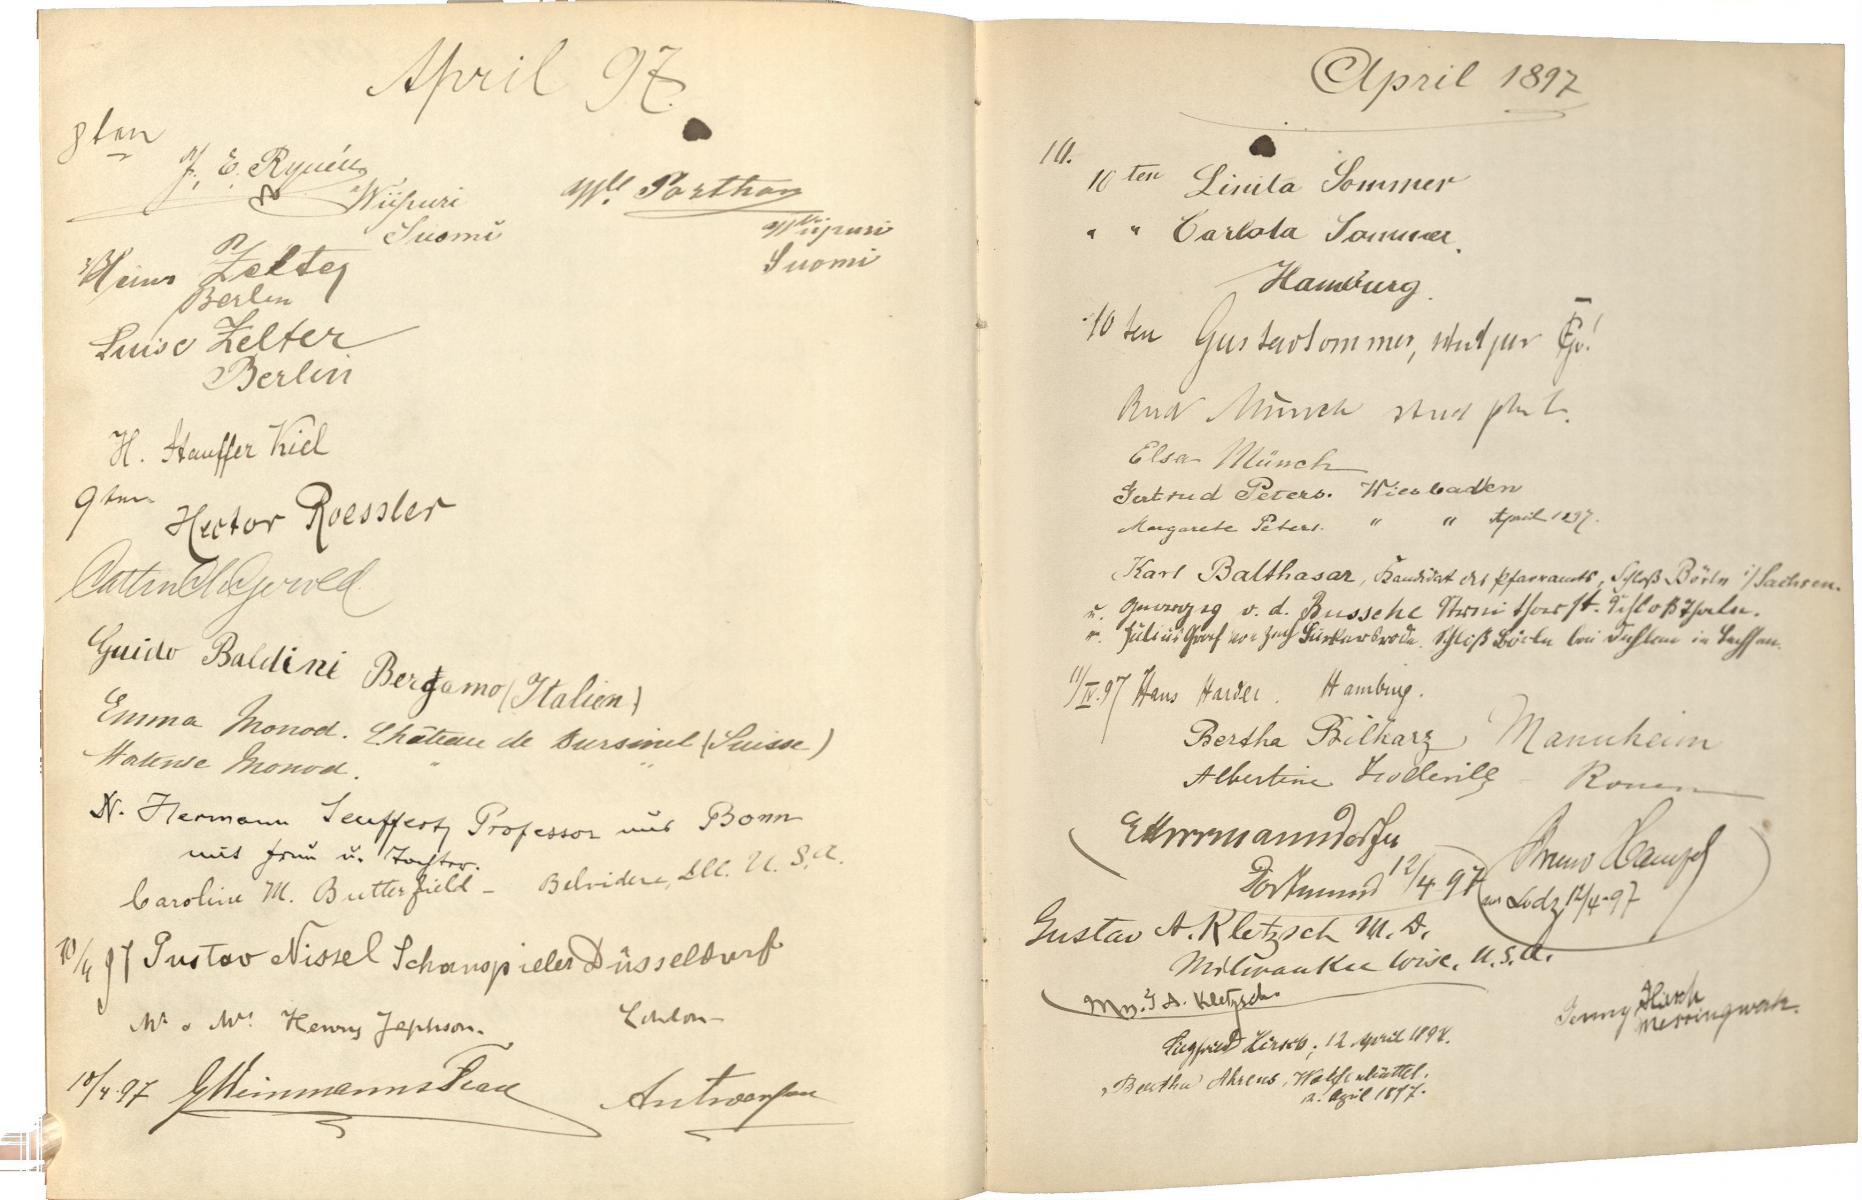 April 97.
8ten
J. E. Rynén
Wiipuri
Suomi
Porthan
Wiipuri
Suomi
Heinr Zelter
Berlin
Luise Zelter
Berlin
H. Stauffer Kiel
9ten
Hector Roessler
Guido Baldini Bergamo (Italien)
Emma Monod. Château de Bursinel (Suisse)
Monod. " "
Dr. Hermann Seuffert, Professor aus Bonn
mit Frau u. Tochter.
Caroline M. Butterfield - Belvidere, Ill. U.S.A.
10/4 97 Gustav Nissel Schauspieler Düsseldorf
Mr & Mrs Henry Jephson. London
10/4.97 Antwerpen
April 1897
10.
10ten Linita Sommer
" " Carlota Sommer.
Hamburg.
10ten Gustav Sommer, stud jur
Rud Münch stud phil.
Elsa Münch
Gertrud Peters. Wiesbaden
Margarete Peters. " " April 1897.
Karl Balthasar, Kandidat des Pfarramts, Schloß Börln i/Sachsen.
u. v. d. Bussche
u. Julius Graf Schloß Börln bei Dahlen in Sachsen.
11/IV.97 Hans Harder. Hamburg.
Bertha Bilharz, Mannheim
Albertine - Rouen
Dortmund 12/4 97
Bruno Hampel
aus Lodz, 12/4-97
Gustav A. Kletzsch M.D.
Milwaukee Wisc. U.S.A.
Mrs. G. A. Kletzsch
Jenny Hirsch
Messingwerk.
Siegfried Hirsch, 12 April 1897.
Bertha Ahrens, Wolfenbüttel.
12. April 1897.